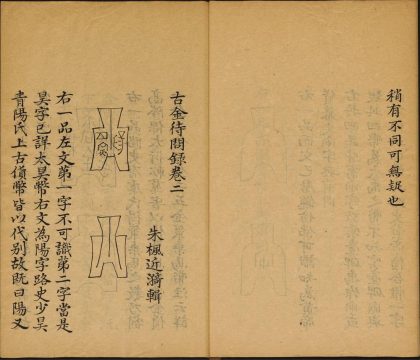 稍有不同可無疑也
古金待問錄卷二
朱楓近漪輯
右一品左文第一字不可識第二字當是
昊字已詳太昊幣右文為陽字路史少昊
青陽氏上古貨幣皆以代别故既曰陽又